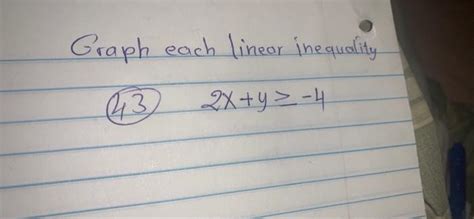 Graph each linear inequality
43 2x+y≥-4